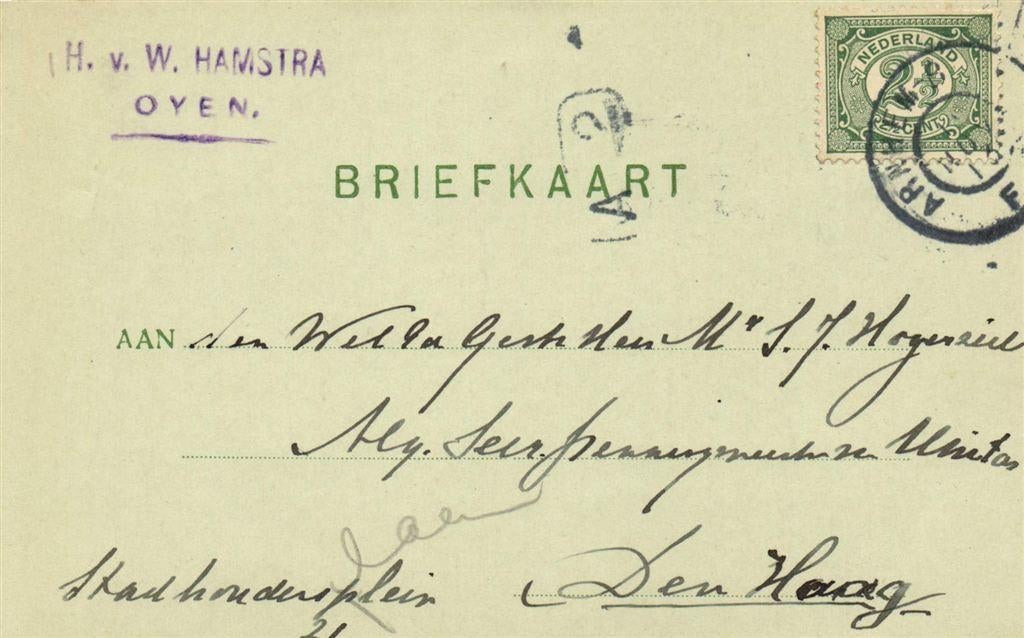 H. v. W. HAMSTRA
OYEN.
NEDERLAND
2½
CENT
ARNHEM
NOV
BRIEFKAART
A 2
AAN den Wel Ed Gestr Heer Mr S. J. Hogerzeil
Alg. Secr. Penningmeester
Den Haag
Stadhoudersplein
21